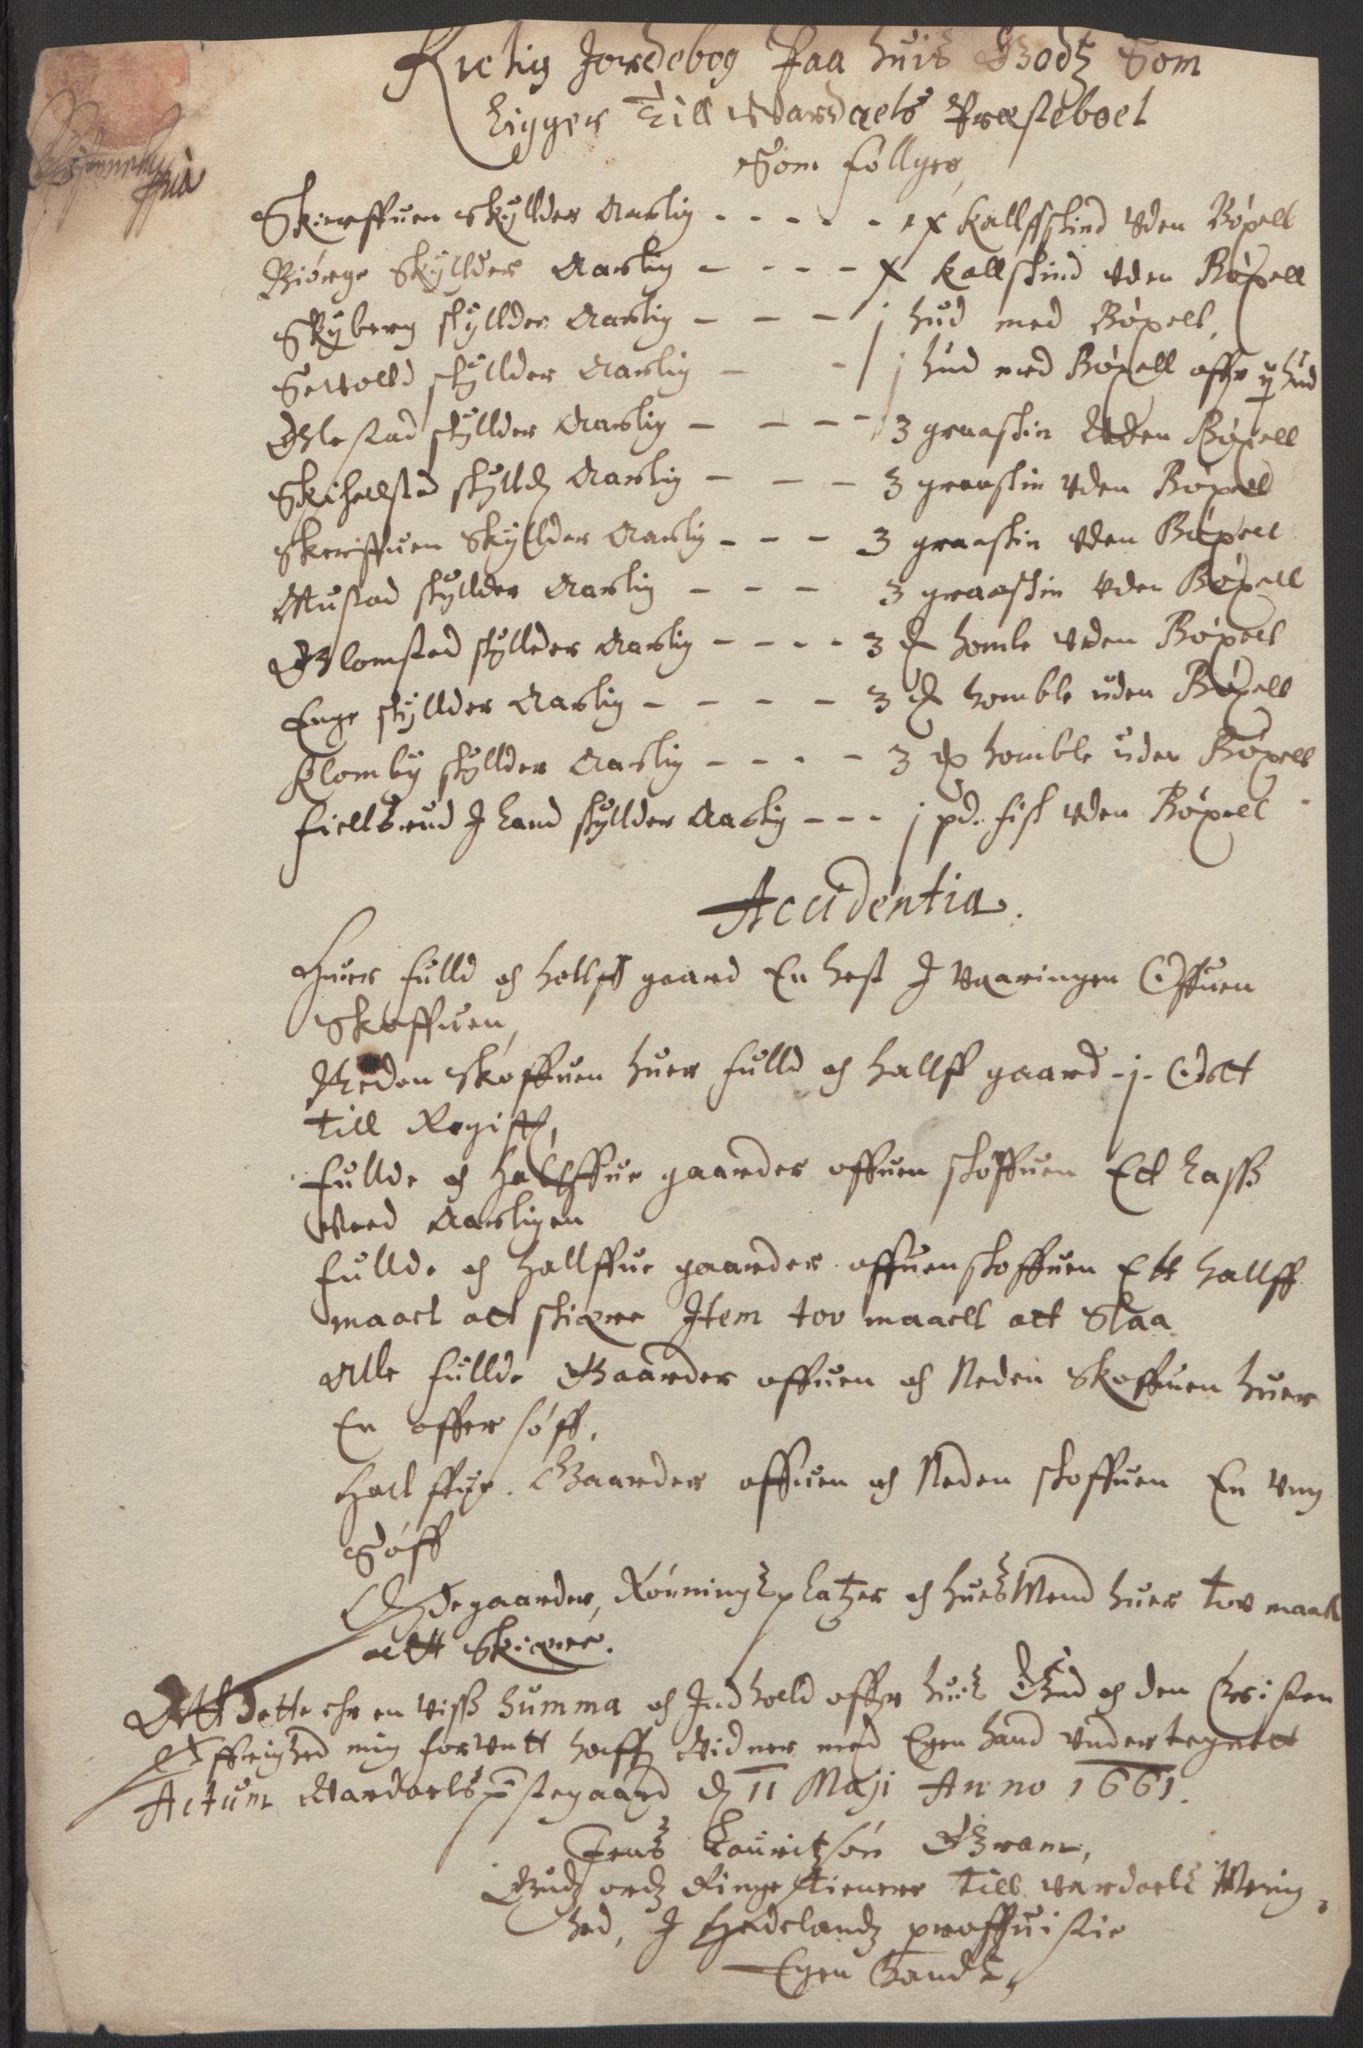 Rictig Jordebog Paa huis Godtz Som
Ligger Till Wardaels Præsteboel
Som følger,
Skierffuen Skyllder Aarlig - - - - - x Kallfskind uden Böxell
Biörge Skyllder Aarlig - - - - x kallskind uden Böxell
Skyberg skyllder Aarlig - - - j hud med Böxell,
skyllder Aarlig - - j hud med Böxell offr hud
skyllder Aarlig - - - - 3 graaskin Uden Böxell
skylld Aarlig - - - 3 graaskin uden Böxell
Skerffuen Skyllder Aarlig - - - 3 graaskin uden Böxell
Mustad skyllder Aarlig - - - 3 graaskin uden Böxell
Blomstad skyllder Aarlig - - - - 3 homle uden Böxell
Enge skyllder Aarlig - - - - 3 homble uden Böxell
Klomby skyllder Aarlig - - - - 3 homble uden Böxell
Fiellsrud J Land skyllder Aarlig - - - j pd. fisk uden Böxell
Accidentia.
Huer fulld och hallff gaard En hest J vaaringen Offuen
Skoffuen,
Neden skoffuen huer fulld och hallff gaard - j -
till
Fullde och Hallffue gaarder offuen skoffuen Ett Lass
Veed Aarligen
Fullde och Hallffue gaarder offuenskoffuen Ett hallff
maael att skiære Item tov maaell att Slaa
Alle fullde Gaarder offuen och Neden Skoffuen huer
En offer söff.
Hallffue Gaarder offuen och Neden skoffuen En Ung
Söff
Ödegaarder, Rönningsplatzer och huesMend huer tov maall
att Skiære.
Att dette ehr en viss Summa och Jndhold offr huis Gud och den Christen
Öffrighed mig forundt haffr Vidner med Egen hand undertegnett
Actum Wardaels prestegaard d 11 Maji Anno 1661.
Jens Lauritzsön Gram,
Gudz ordz Ringe tienere till vardaels Menig-
hed, J Hadelandz proffuistie
Egen Handt,